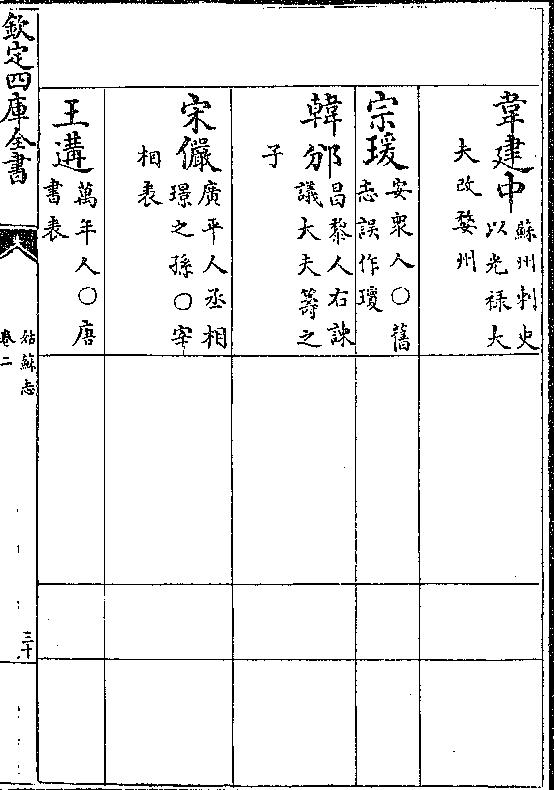 韋建中 蘇州刺史
以光禄大
夫改婺州
宗瑗 安衆人〇舊
志誤作瓊
韓邠 昌黎人右諌
議大夫籌之
子
宋儼 廣平人丞相
璟之孫〇宰
相表
王遘 萬年人〇唐
書表
欽定四庫全書
姑蘇志
卷二
三十